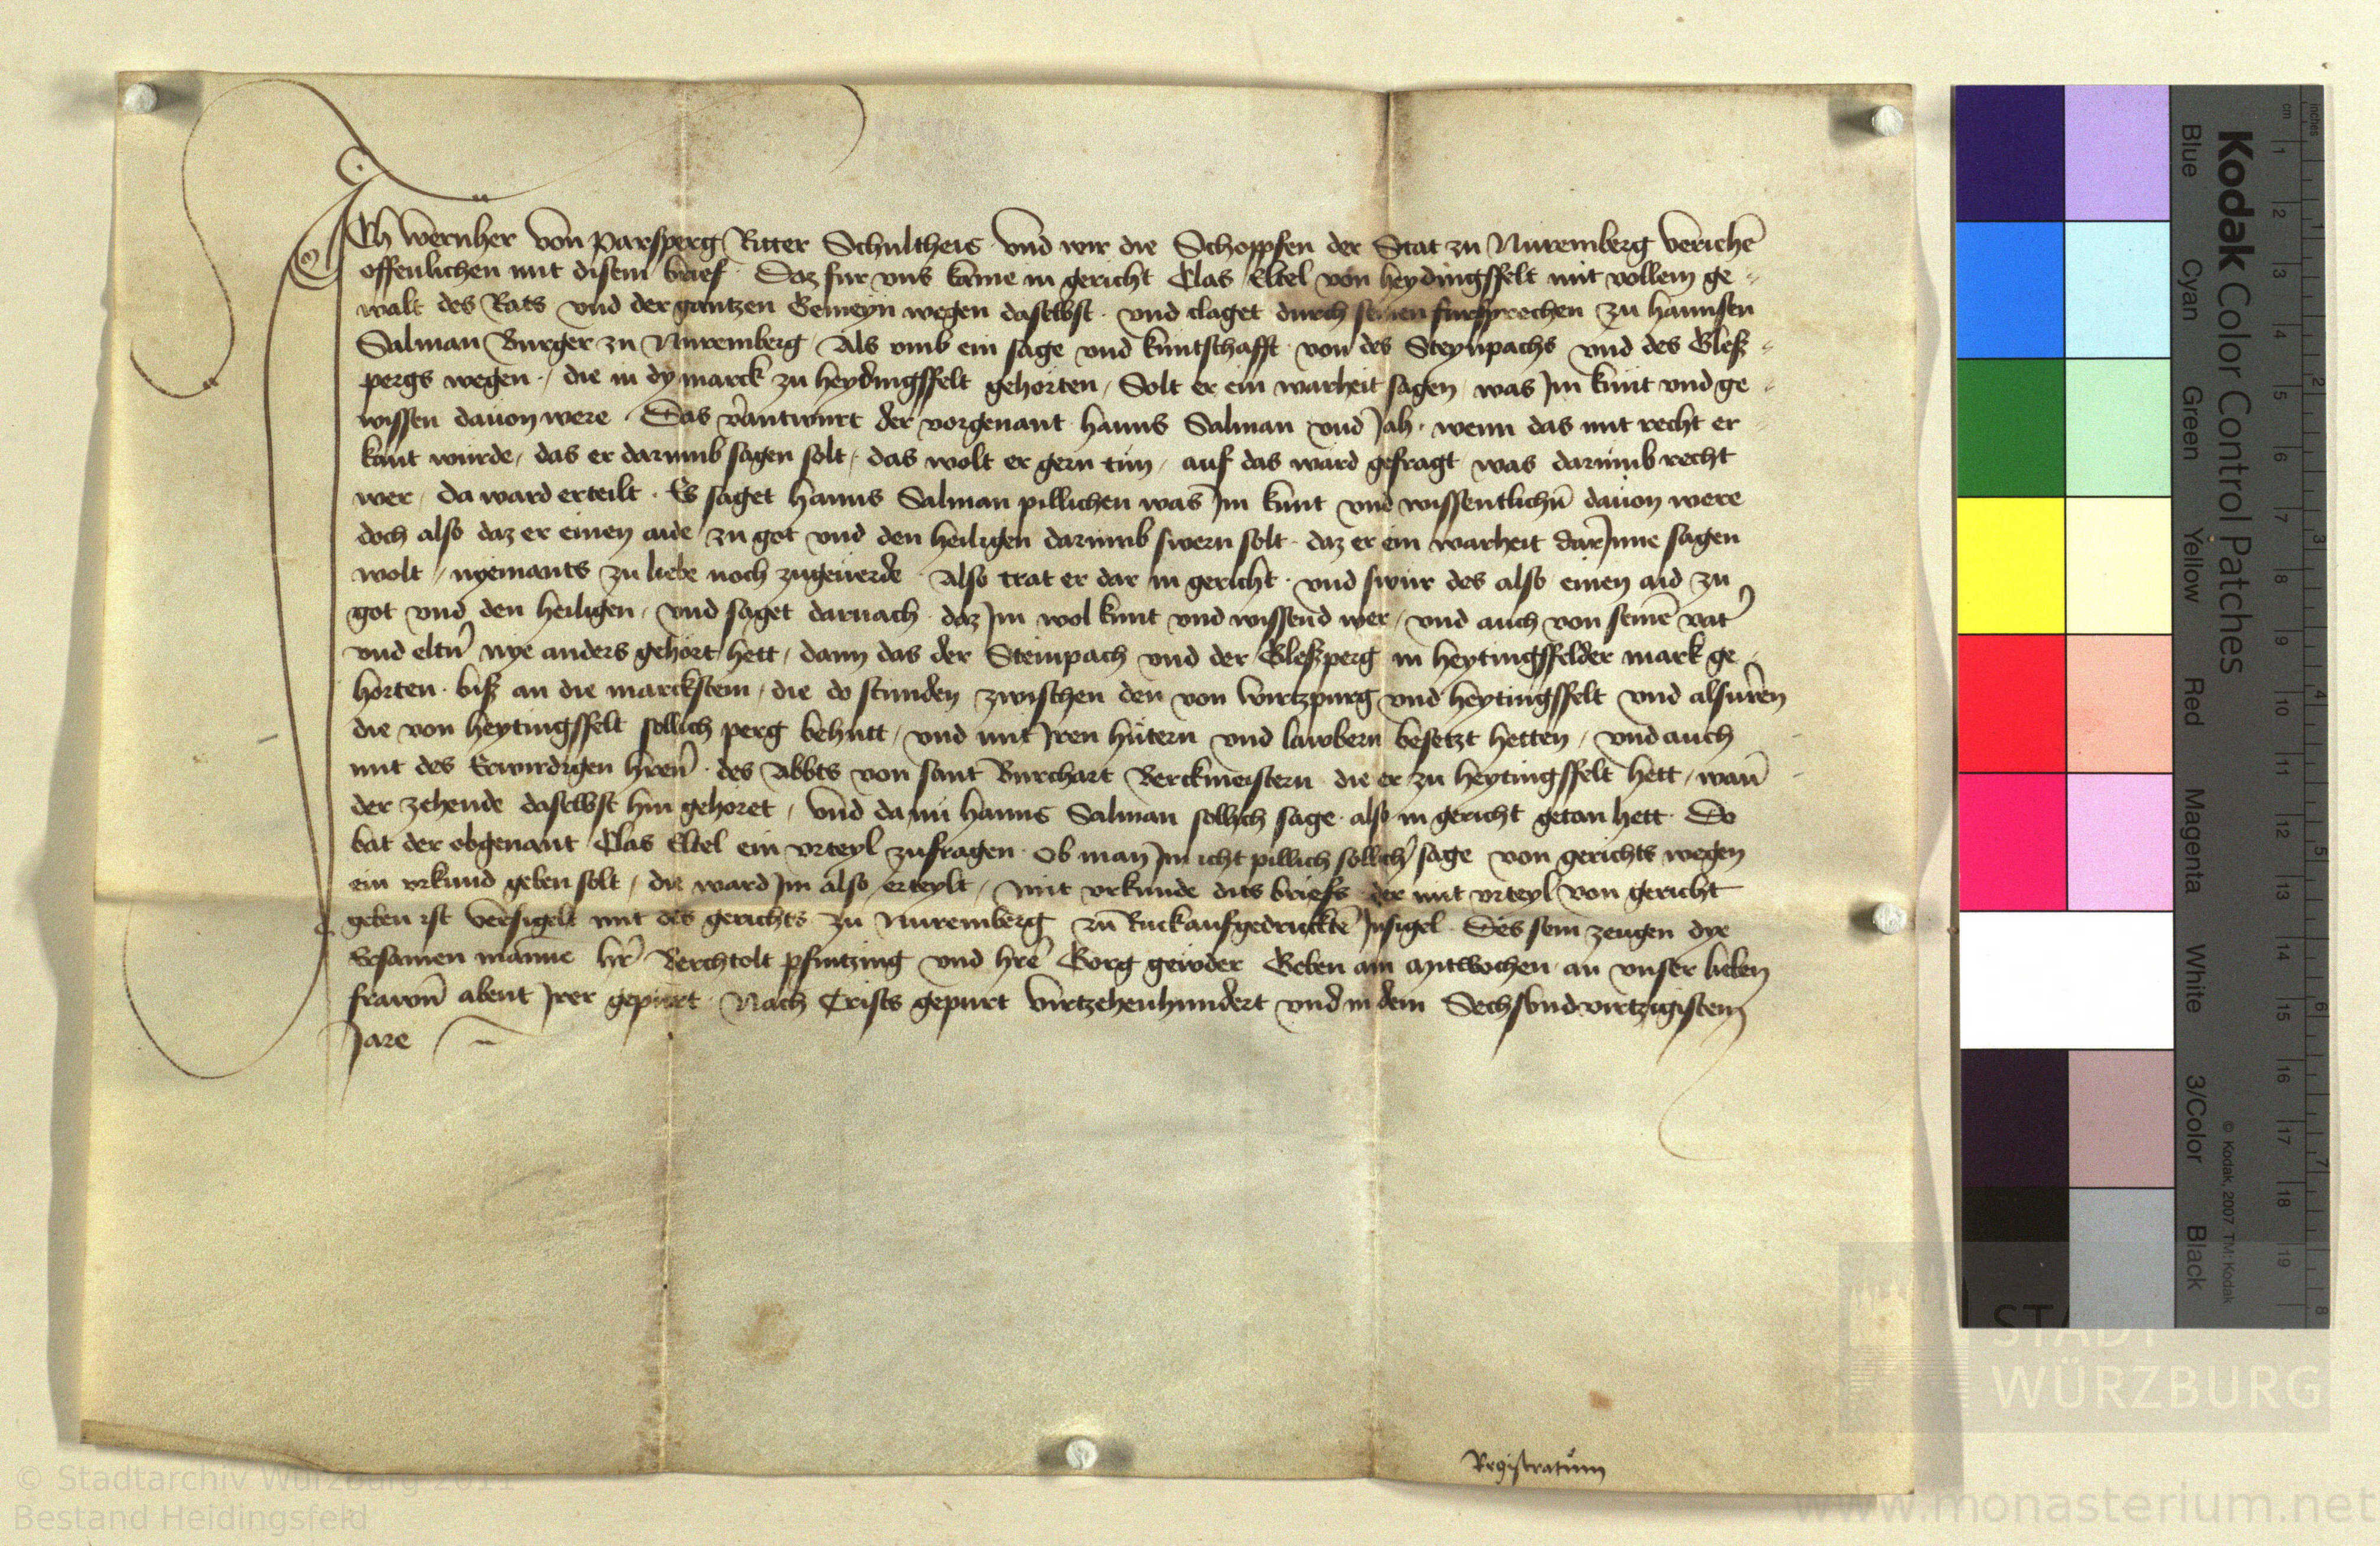 Ich Wernher von Parsperg Ritter Schultheis vnd wir die Schoppfen der Stat zu Nuremberg veriehē
offenlichen mit disem brief Daz fur vns kame in gericht Clas Eltel von heydingsfelt mit vollem ge-
walt des Rats vnd der gantzen Gemeyn wegen daselbst vnd claget durch seinen fursprechen zu hannsen
Salman Burger zu Nuremberg Als vmb ein sage vnd kuntschafft von des Steynpachs vnd des Gleß-
pergs wegen die in dy marck zu heydingsfelt gehorten Solt er ein warheit sagen was Im kunt vnd ge-
wissen dauon were Das v'antwurt der vorgenant hanns Salman vnd Jah wenn das mit recht er
kant wurde das er darumb sagen solt das wolt er gern tun auf das ward gefragt was darumb recht
wer da ward erteilt Es saget hanns Salman pillichen was Im kunt vnd wissentlichn̄ dauon were
doch also daz er einen aide zu got vnd den heiligen darumb swern solt daz er ein warheit darInne sagen
wolt nyemants zu liebe noch zugeuerde Also trat er dar in gericht vnd swur des also einen aid zu
got vnd den heiligen vnd saget darnach daz Im wol kunt vnd wissend wer vnd auch von seinē vat'
vnd eltn̄ nye anders gehort hett dann das der Steinpach vnd der Gleßperg in heytingsfelder mark ge
horten biß an die marckstein die do stunden zwischen den von Wirtzpurg vnd heytingsfelt vnd als
die von heytingsfelt sollich perg behutt vnd mit Iren hütern vnd lawbern besetzt hetten vnd auch
mit des Erwirdigen hren̄ des Abbts von sant Burchart Berckmeistern die er zu heytingsfelt hett wan̄
der zehende daselbst hin gehoret vnd da nu hanns Salman sollich sage also in gericht getan hett Do
bat der obgenant Clas Eltel ein vrteyl zufragen Ob man Im icht pillich sollich' sage von gerichts wegen
ein vrkund geben solt die ward Im also erteylt mit vrkunde dits briefs der mit vrteyl von gericht
geben ist versigelt mit des gerichts zu Nuremberg zu Ruckaufgedrucktē Insigel Des sein zeugen dye
Ersamen manne hr̄ Berchtolt pfintzing vnd hrē Gorg gewder Geben am mitwochen an vnser lieben
frawn̄ abent Irer gepurt Nach Crists gepurt virtzehenhundert vnd in dem Sechsvndvirtzigistem
Jare
Registratum
Kodak Color Control Patches
Blue Cyan Green Yellow Red Magenta White 3/Color Black
© Kodak, 2007 TM: Kodak
cm 1 2 3 4 5 6 7 8 9 10 11 12 13 14 15 16 17 18 19
inches 1 2 3 4 5 6 7 8
STADT
WÜRZBURG
© Stadtarchiv Würzburg 2011
Bestand Heidingsfeld
www.monasterium.net